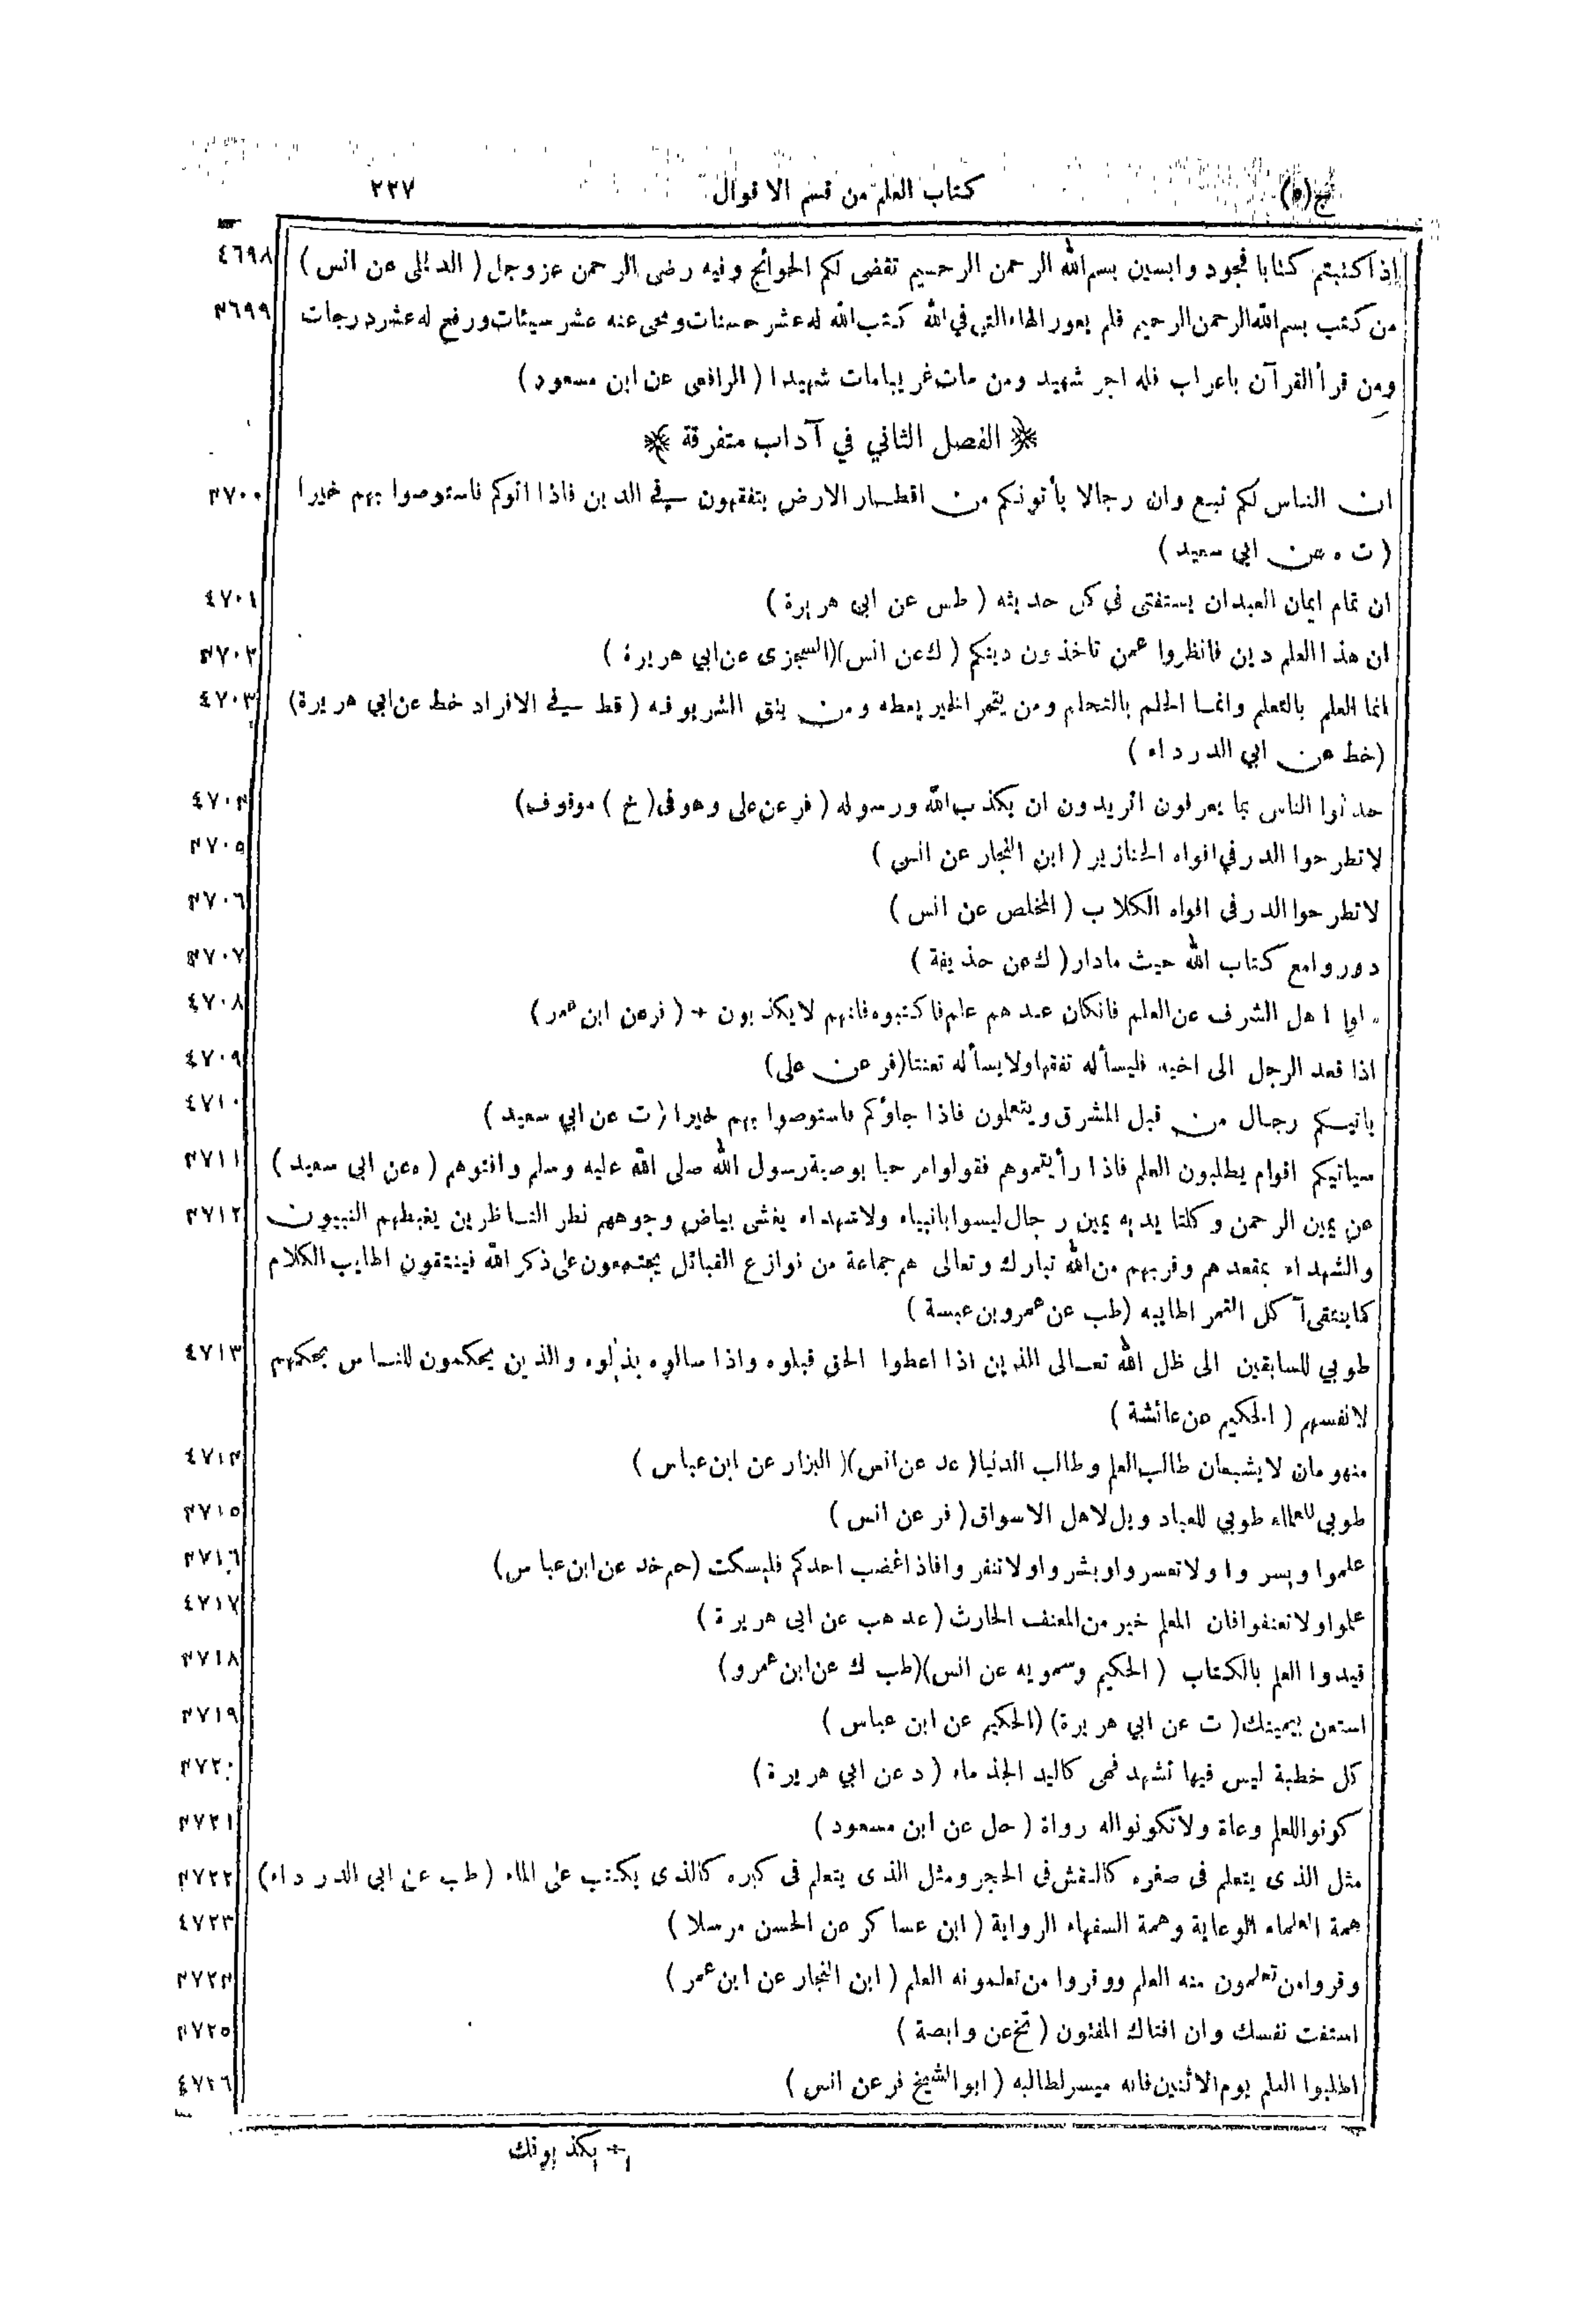 ج(٥) كتاب العلم من قسم الاقوال ٢٣٧
٤٦٩٨ إذا كتبتم كتابا فجودوا بسين بسم الله الرحمن الرحيم تقضى لكم الحوائج وفيه رضى الرحمن عزوجل (الديلمي عن انس)
٤٦٩٩ من كتب بسم الله الرحمن الرحيم فلم يعور الهاء التي في الله كتب الله له عشر حسنات ومحى عنه عشر سيئات ورفع له عشر درجات
ومن قرأ القرآن باعراب فله اجر شهيد ومن مات غريبا مات شهيدا (الرافعى عن ابن مسعود)
﴿ الفصل الثاني في آداب متفرقة ﴾
٤٧٠٠ ان الناس لكم تبع وان رجالا يأتونكم من اقطار الارض يتفقهون في الدين فاذا اتوكم فاستوصوا بهم خيرا
(ت ه عن ابي سعيد)
٤٧٠١ ان تمام ايمان العبد ان يستثنى في كل حديثه (طس عن ابي هريرة)
٤٧٠٢ ان هذا العلم دين فانظروا عمن تاخذون دينكم (ك عن انس)(السجزى عن ابي هريرة)
٤٧٠٣ انما العلم بالتعلم وانما الحلم بالتحلم ومن يتحر الخير يعطه ومن يتق الشر يوقه (قط في الافراد خط عن ابي هريرة)
(خط عن ابي الدرداء)
٤٧٠٤ حدثوا الناس بما يعرفون اتريدون ان يكذب الله ورسوله (فر عن على وهو فى (خ) موقوف)
٤٧٠٥ لا تطرحوا الدر في افواه الخنازير (ابن النجار عن انس)
٤٧٠٦ لا تطرحوا الدر فى افواه الكلاب (المخلص عن انس)
٤٧٠٧ دوروا مع كتاب الله حيث مادار (ك عن حذيفة)
٤٧٠٨ اهل الشرف عن العلم فان كان عندهم علم فاكتبوه فانهم لا يكذبون + (فر عن ابن عمر)
٤٧٠٩ اذا قعد الرجل الى اخيه فليسأله تفقها ولا يسأله تعنتا (فر عن على)
٤٧١٠ ياتيكم رجال من قبل المشرق ويتعلمون فاذا جاؤكم فاستوصوا بهم خيرا (ت عن ابي سعيد)
٤٧١١ سياتيكم اقوام يطلبون العلم فاذا رأيتموهم فقولوا مرحبا بوصية رسول الله صلى الله عليه وسلم وافتوهم (ه عن ابى سعيد)
٤٧١٢ عن يمين الرحمن وكلتا يديه يمين رجال ليسوا بانبياء ولا شهداء يغشى بياض وجوههم نظر الناظرين يغبطهم النبيون
والشهداء بمقعدهم وقربهم من الله تبارك وتعالى هم جماعة من نوازع القبائل يجتمعون على ذكر الله فينتقون اطايب الكلام
كما ينتقى آكل التمر اطايبه (طب عن عمرو بن عبسة)
٤٧١٣ طوبي للسابقين الى ظل الله تعالى الذين اذا اعطوا الحق قبلوه واذا سالوه بذلوه والذين يحكمون للناس بحكمهم
لانفسهم (الحكيم عن عائشة)
٤٧١٤ منهومان لا يشبعان طالب العلم وطالب الدنيا (عد عن انس)(البزار عن ابن عباس)
٤٧١٥ طوبي للعلماء طوبي للعباد ويل لاهل الاسواق (فر عن انس)
٤٧١٦ علموا ويسروا ولا تعسروا وبشروا ولا تنفروا فاذا غضب احدكم فليسكت (حم خد عن ابن عباس)
٤٧١٧ علموا ولا تعنفوا فان المعلم خير من المعنف الحارث (عد هب عن ابى هريرة)
٤٧١٨ قيدوا العلم بالكتاب (الحكيم وسمويه عن انس)(طب ك عن ابن عمرو)
٤٧١٩ استعن بيمينك (ت عن ابي هريرة) (الحكيم عن ابن عباس)
٤٧٢٠ كل خطبة ليس فيها تشهد فهى كاليد الجذماء (د عن ابي هريرة)
٤٧٢١ كونوا للعلم وعاة ولا تكونوا له رواة (حل عن ابن مسعود)
٤٧٢٢ مثل الذى يتعلم فى صغره كالنقش فى الحجر ومثل الذى يتعلم فى كبره كالذى يكتب على الماء (طب عن ابى الدرداء)
٤٧٢٣ همة العلماء الوعاية وهمة السفهاء الرواية (ابن عساكر عن الحسن مرسلا)
٤٧٢٤ وقروا من تعلمون منه العلم ووقروا من تعلمونه العلم (ابن النجار عن ابن عمر)
٤٧٢٥ استفت نفسك وان افتاك المفتون (تخ عن وابصة)
٤٧٢٦ اطلبوا العلم يوم الاثنين فانه ميسر لطالبه (ابو الشيخ فر عن انس)
+ يكذبونك